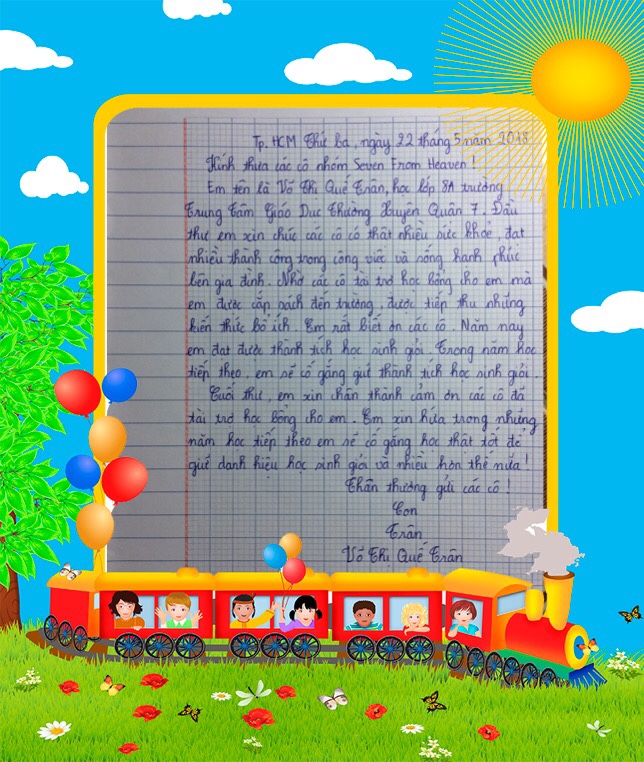 Tp. HCM Thứ ba, ngày 22 tháng 5 năm 2018
Kính thưa các cô nhóm Seven From Heaven !
Em tên là Võ Thị Quế Trân, học lớp 8A trường
Trung Tâm Giáo Dục Thường Xuyên Quận 7. Đầu
thư em xin chúc các cô có thật nhiều sức khỏe, đạt
nhiều thành công trong công việc và sống hạnh phúc
bên gia đình. Nhờ các cô tài trợ học bổng cho em mà
em được cắp sách đến trường, được tiếp thu những
kiến thức bổ ích. Em rất biết ơn các cô. Năm nay
em đạt được thành tích học sinh giỏi. Trong năm học
tiếp theo, em sẽ cố gắng giữ thành tích học sinh giỏi.
Cuối thư, em xin chân thành cảm ơn các cô đã
tài trợ học bổng cho em. Em xin hứa trong những
năm học tiếp theo em sẽ cố gắng học thật tốt để
giữ danh hiệu học sinh giỏi và nhiều hơn thế nữa !
Thân thương gửi các cô !
Con
Trân
Võ Thị Quế Trân